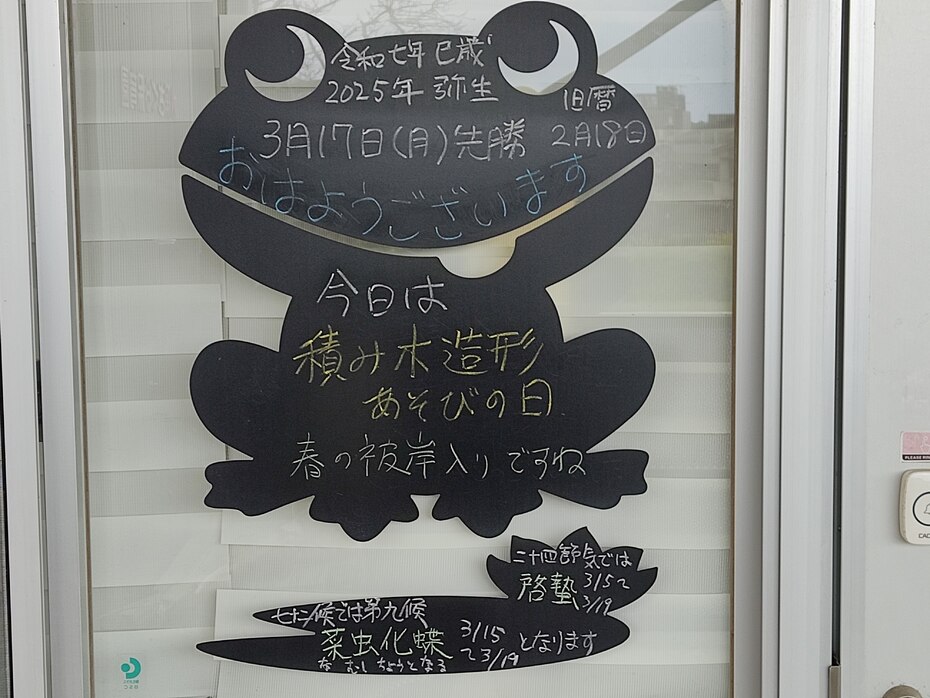 令和七年 巳歳
2025年 弥生
旧暦
3月17日(月)先勝 2月18日
おはようございます
今日は
積み木造形
あそびの日
春の被岸入りですね
二十四節気では
啓蟄 3/5〜
3/19
七十二候では第九候
菜虫化蝶 3/15
〜3/19 となります
なむしちょうとなる